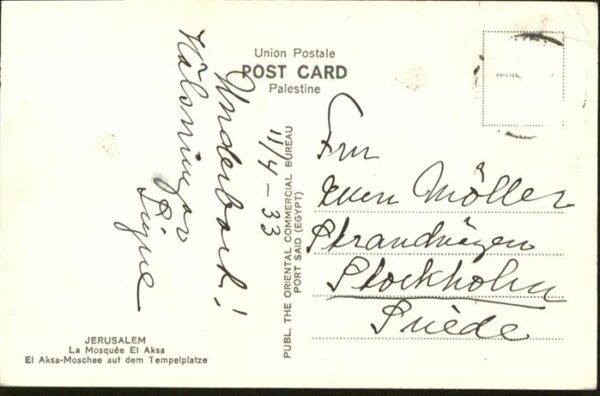 Union Postale
POST CARD
Palestine
Underbart!
Hälsningar
Signe
11/4-33
PUBL. THE ORIENTAL COMMERCIAL BUREAU
PORT SAID (EGYPT)
Fru
Möller
Strandvägen
Stockholm
Suède
JERUSALEM
La Mosquée El Aksa
El Aksa-Moschee auf dem Tempelplatze